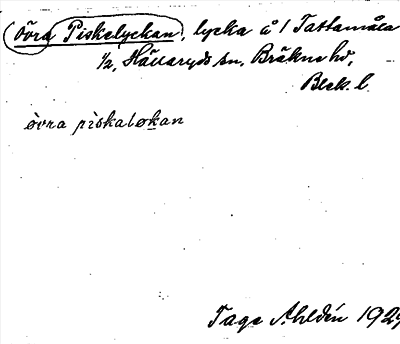 övra Piskelyckan, lycka å 1 Tattamåla
1/2, Hällaryds sn, Bräkne hd,
Blek. l.
òvra pìskaløkan
Tage Ahldén 1929